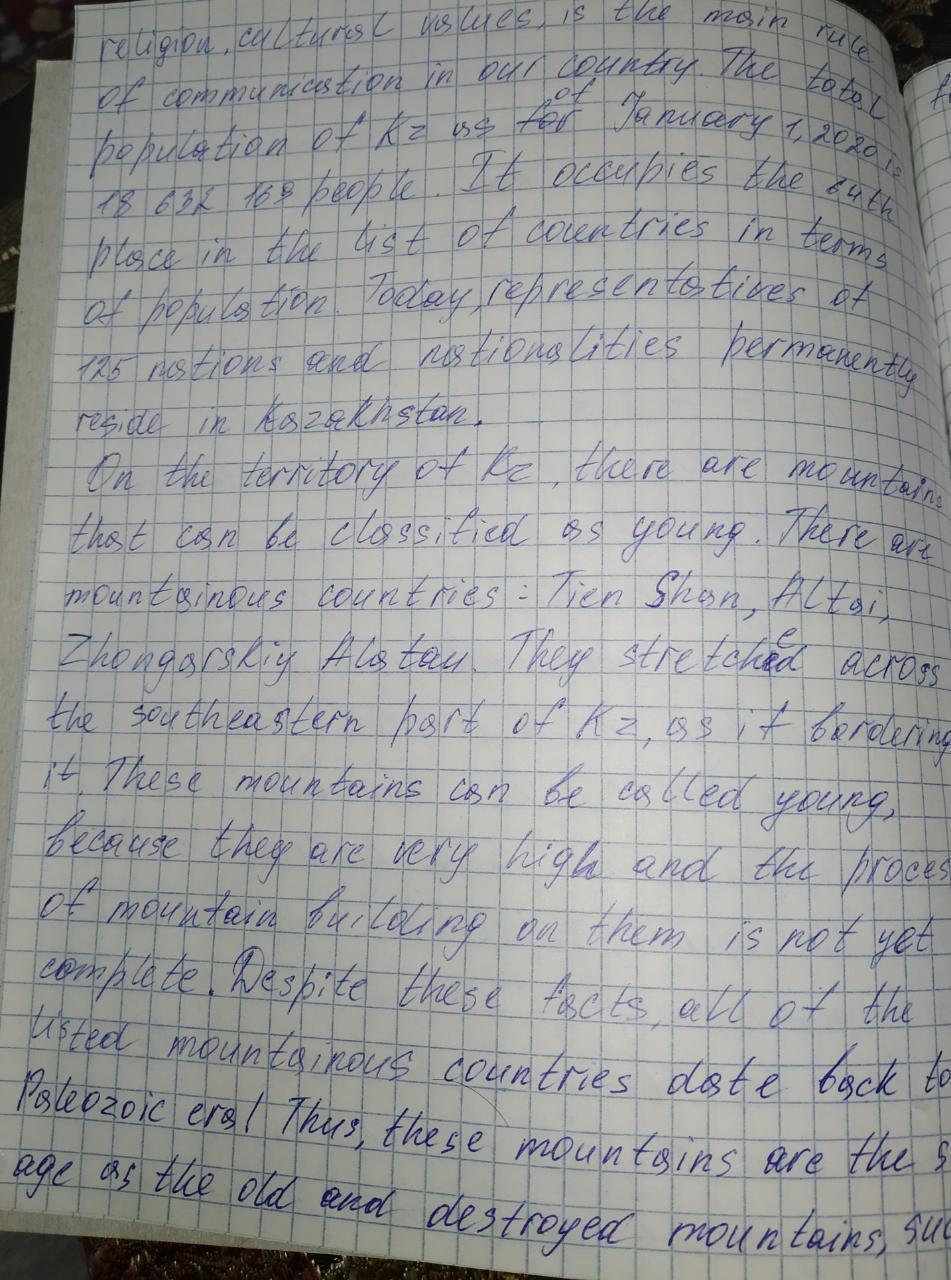 religion, cultural values, is the main rule
of communication in our country. The total
population of Kz as for of January 1, 2020 is
18 632 169 people. It occupies the 64th
place in the list of countries in terms
of population. Today, representatives of
125 nations and nationalities permanently
reside in Kazakhstan.
On the territory of Kz, there are mountains
that can be classified as young. There are
mountainous countries: Tien Shan, Altai,
Zhongarskiy Alatau. They stretched across
the southeastern part of Kz, as if bordering
it. These mountains can be called young,
because they are very high and the proces
of mountain building on them is not yet
complete. Despite these facts, all of the
listed mountainous countries date back to
Paleozoic era! Thus, these mountains are the s
age as the old and destroyed mountains, suc